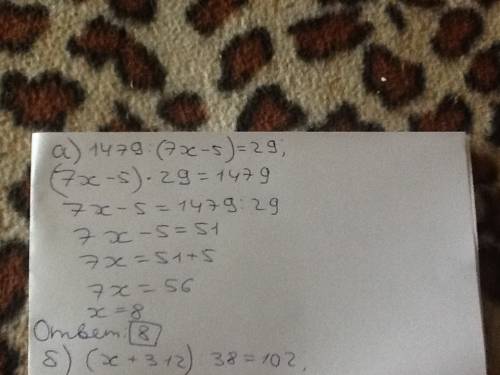 а) 1479:(7x-5)=29;
(7x-5)·29=1479
7x-5=1479:29
7x-5=51
7x=51+5
7x=56
x=8
Ответ: 8
б) (x+312) 38=102,